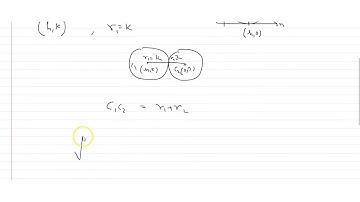 (h,k) , r₁=k
x
(h,0)
r₁=k r₂2
C₁ (h,k) C₂(0,2)
C₁C₂ = r₁+r₂
√